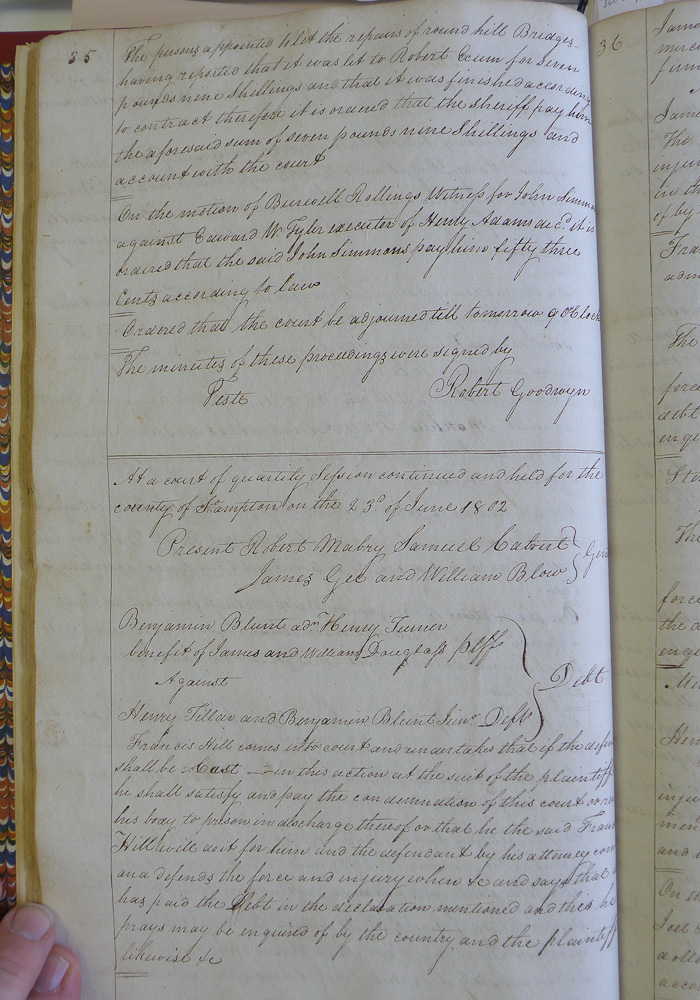 35
The persons appointed to let the repairs of round hill Bridges
having reported that it was let to Robert Exum for Seven
pounds nine Shillings and that it was finished according
to contract therefore it is ordered that the sheriff pay him
the aforesaid sum of seven pounds nine Shillings and
account with the court
On the motion of Burwell Rollings Witness for John Simmons
against Edward W. Tyler executor of Henry Adams decd. it is
ordered that the said John Simmons pay him fifty three
Cents according to law
Ordered that the court be adjourned till tomorrow 9 oClock
The minutes of these proceedings were signed by
Teste Robert Goodwyn
At a court of quarterly Session continued and held for the
county of So.ampton on the 23d of June 1802
Present Robert Mabry Samuel Calvert
James Gee and William Blow
Gen
Benjamin Blunt adr. Henry Turner
benefit of James and William Douglass plff
Against
Debt
Henry Tillar and Benjamin Blunt Junr. Defts
Francis Hill comes into court and undertakes that if the defen
shall be Cast in this action at the suit of the plaintiff
he shall satisfy and pay the condemnation of this court or
his body to prison in discharge thereof or that he the said Fran
Hill will do it for him and the defendant by his attorney com
and defends the force and injury when &c and says that
has paid the Debt in the declaration mentioned and this he
prays may be inquired of by the country and the plaintiff
likewise &c
36
James
The
of by
Fra
adm
The
force
debt
The
force
the d
Hen
and
On th